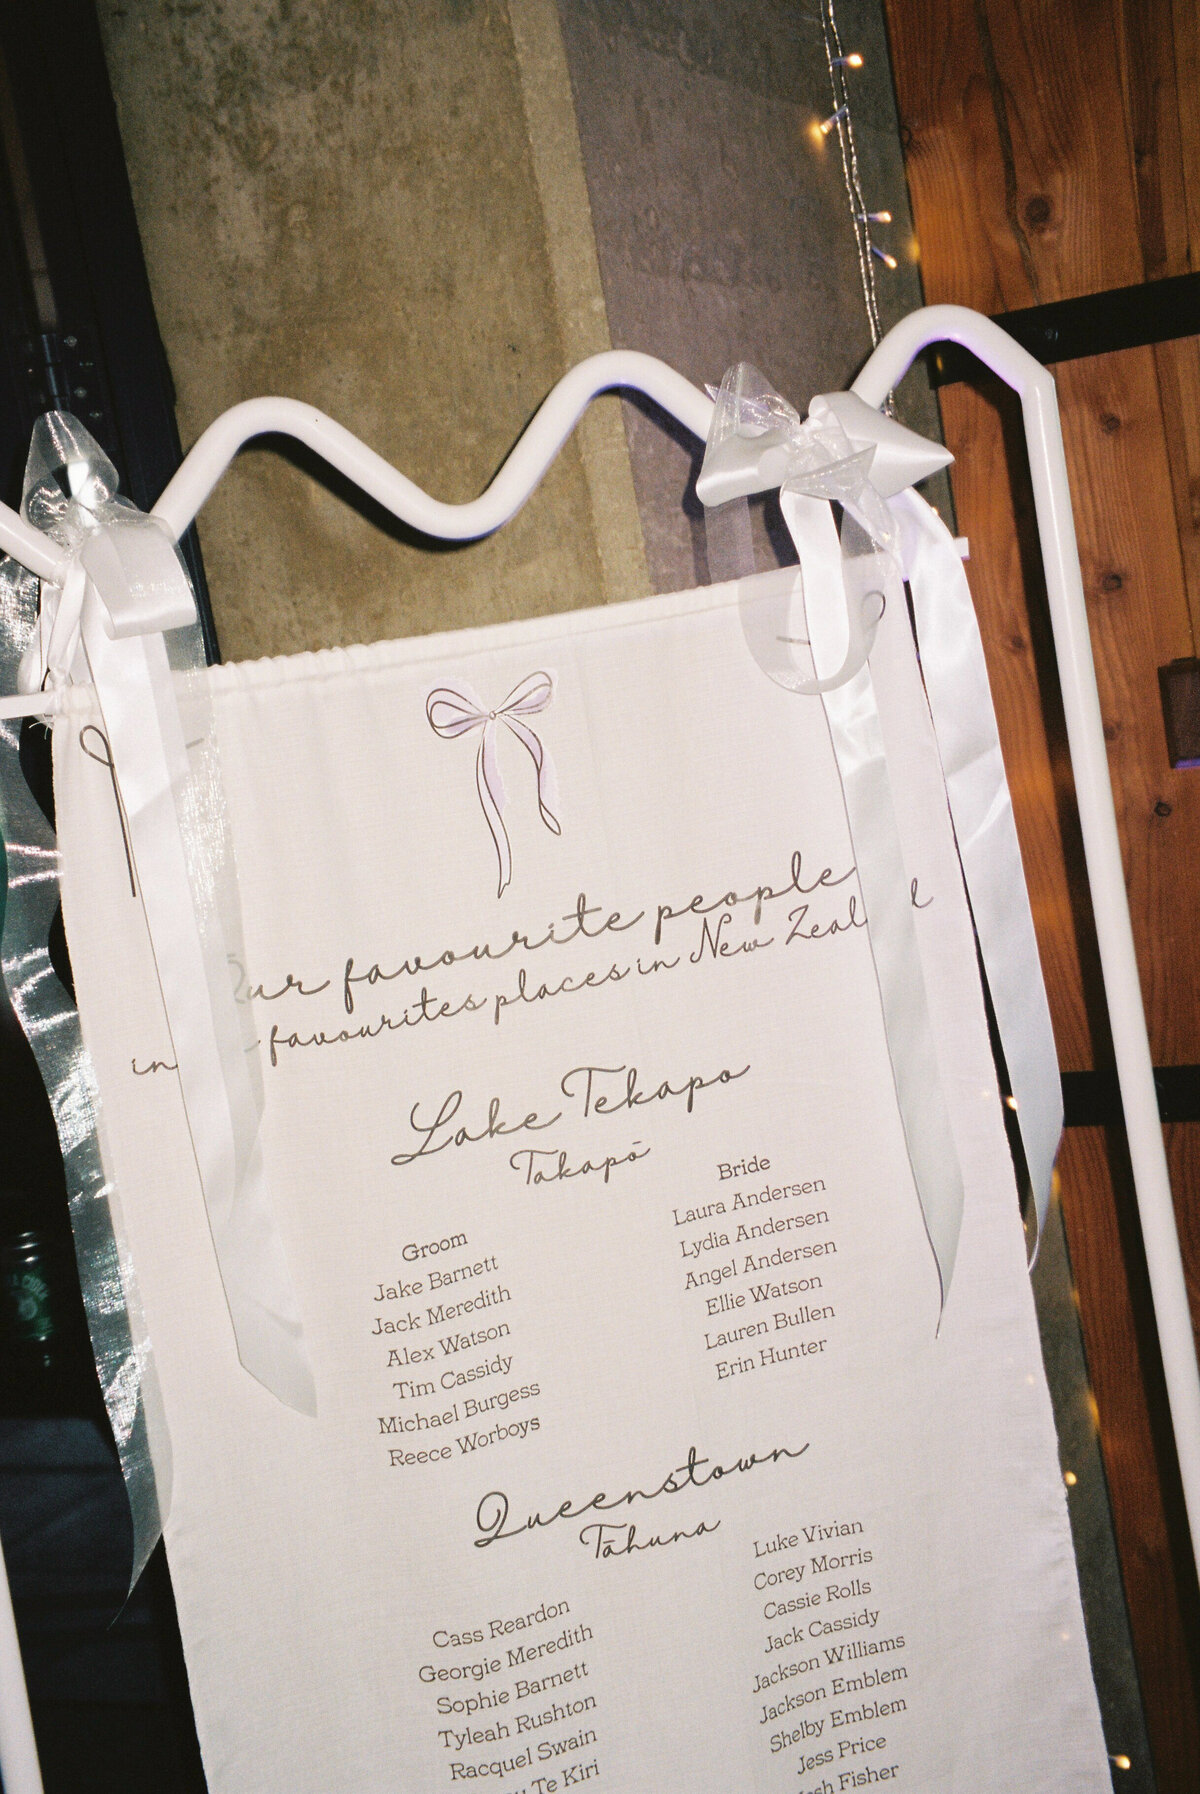 Our favourite people
in favourites places in New Zeal
Lake Tekapo
Takapō
Groom
Jake Barnett
Jack Meredith
Alex Watson
Tim Cassidy
Michael Burgess
Reece Worboys
Bride
Laura Andersen
Lydia Andersen
Angel Andersen
Ellie Watson
Lauren Bullen
Erin Hunter
Queenstown
Tāhuna
Cass Reardon
Georgie Meredith
Sophie Barnett
Tyleah Rushton
Racquel Swain
Te Kiri
Luke Vivian
Corey Morris
Cassie Rolls
Jack Cassidy
Jackson Williams
Jackson Emblem
Shelby Emblem
Jess Price
Fisher